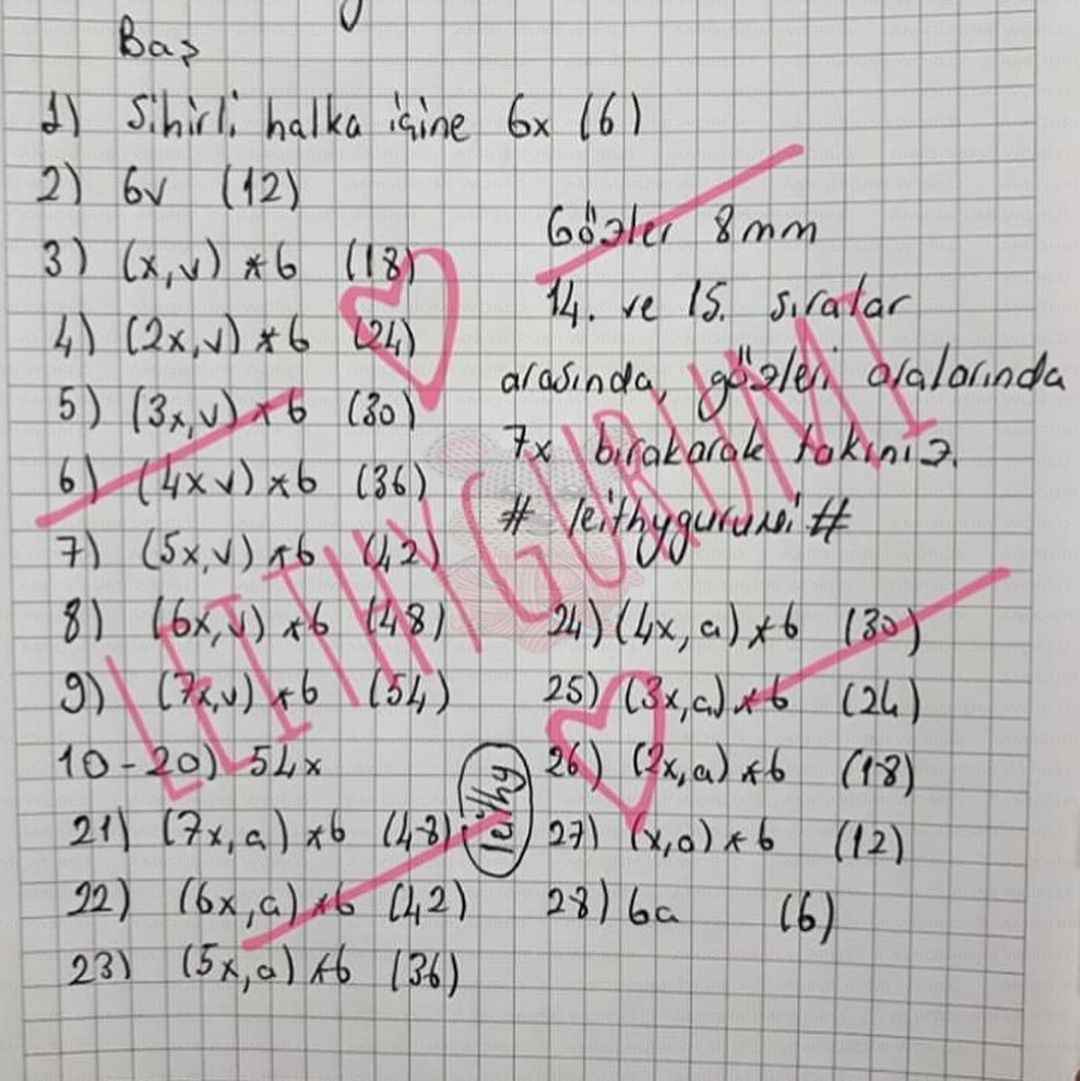 Baş
1) Sihirli halka içine 6x (6)
2) 6v (12)
3) (x,v) *6 (18)
4) (2x,v) *6 (24)
5) (3x,v) *6 (30)
6) (4x v) *6 (36)
7) (5x,v) *6 (42)
8) (6x,v) *6 (48)
9) (7x,v) *6 (54)
10-20) 54x
21) (7x,a) *6 (48)
22) (6x,a) *6 (42)
23) (5x,a) *6 (36)
Gözler 8mm
14. ve 15. sıralar
arasında, gözleri aralarında
7x bırakarak takınız.
# leithygurumi #
24) (4x,a) *6 (30)
25) (3x,a) *6 (24)
26) (2x,a) *6 (18)
27) (x,a) *6 (12)
28) 6a (6)
Leithy
LEITHYGURUMI
AMIGURUMI WORLD